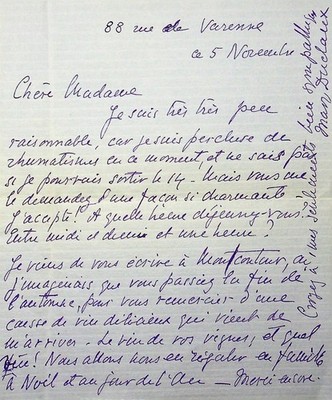 88 rue de Varenne
ce 5 Novembre
Chère Madame
Je suis très très peu
raisonnable, car je suis percluse de
rhumatismes en ce moment et ne sais pas
si je pourrais sortir le 14. Mais vous me
le demandez d'une façon si charmante
J'accepte! A quelle heure déjeunez-vous?
Entre midi et demie et une heure?
Je viens de vous écrire à Montcontour, car
j'imaginais que vous passiez la fin de
l'automne, pour vous remercier d'une
caisse de vin délicieux qui vient de
m'arriver. Le vin de vos vignes, et quel
vin! Nous allons nous en régaler en famille
à Noël et au jour de l'An — Merci encore.
Croyez à mes sentiments bien sympathiques
Mary Duclaux